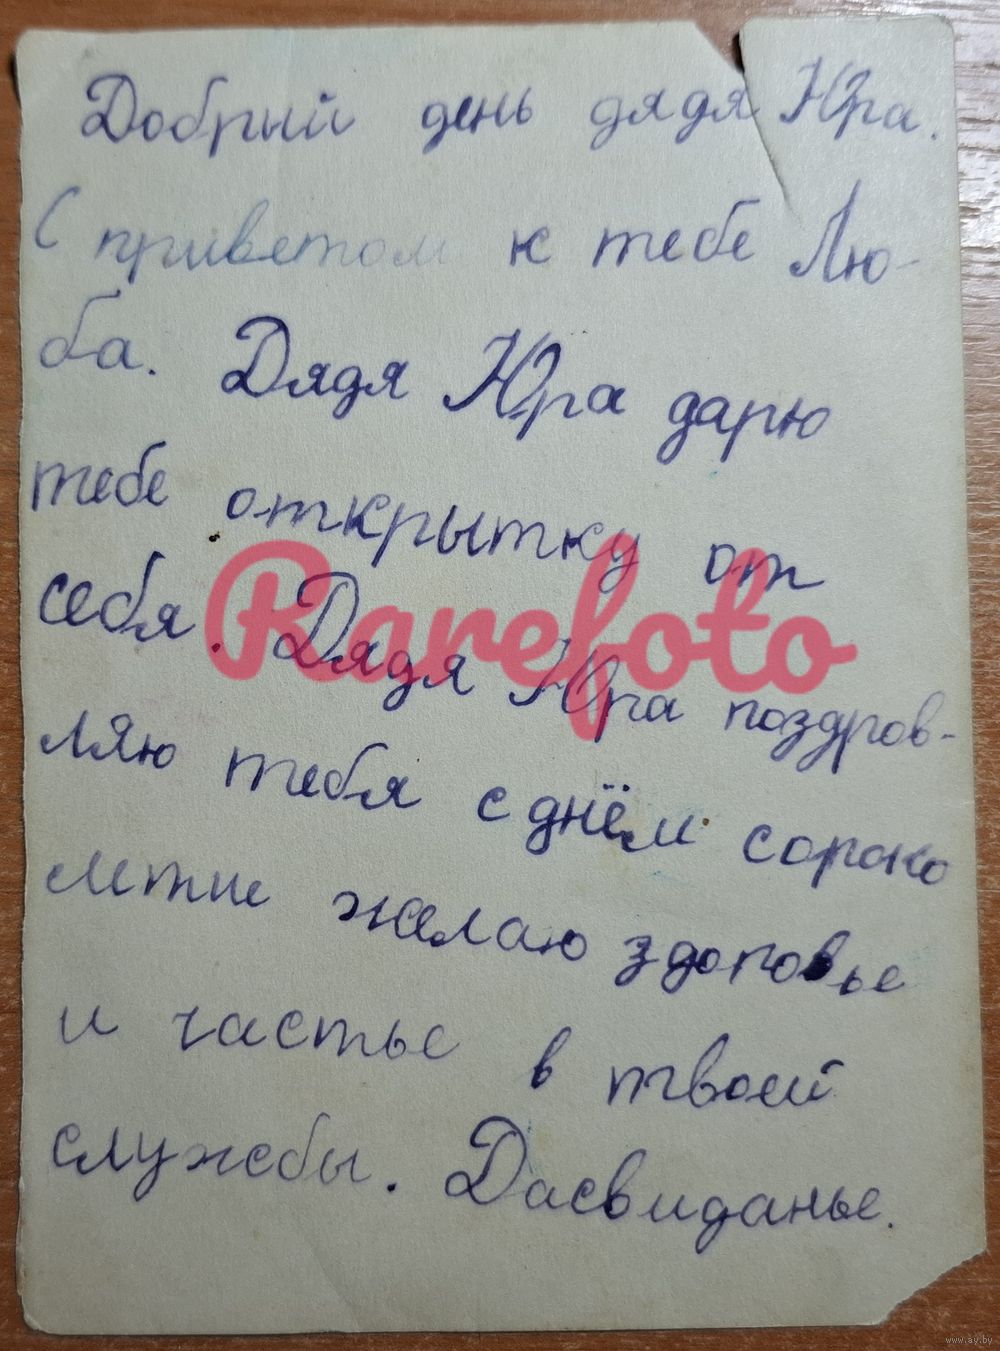 Добрый день дядя Юра.
С приветом к тебе Лю-
ба. Дядя Юра дарю
тебе открытку от
себя. Дядя Юра поздров-
ляю тебя с днём сороко
летие желаю здоровье
и частье в твоей
службы. Дасвиданье.
Rarefoto
www.ay.by